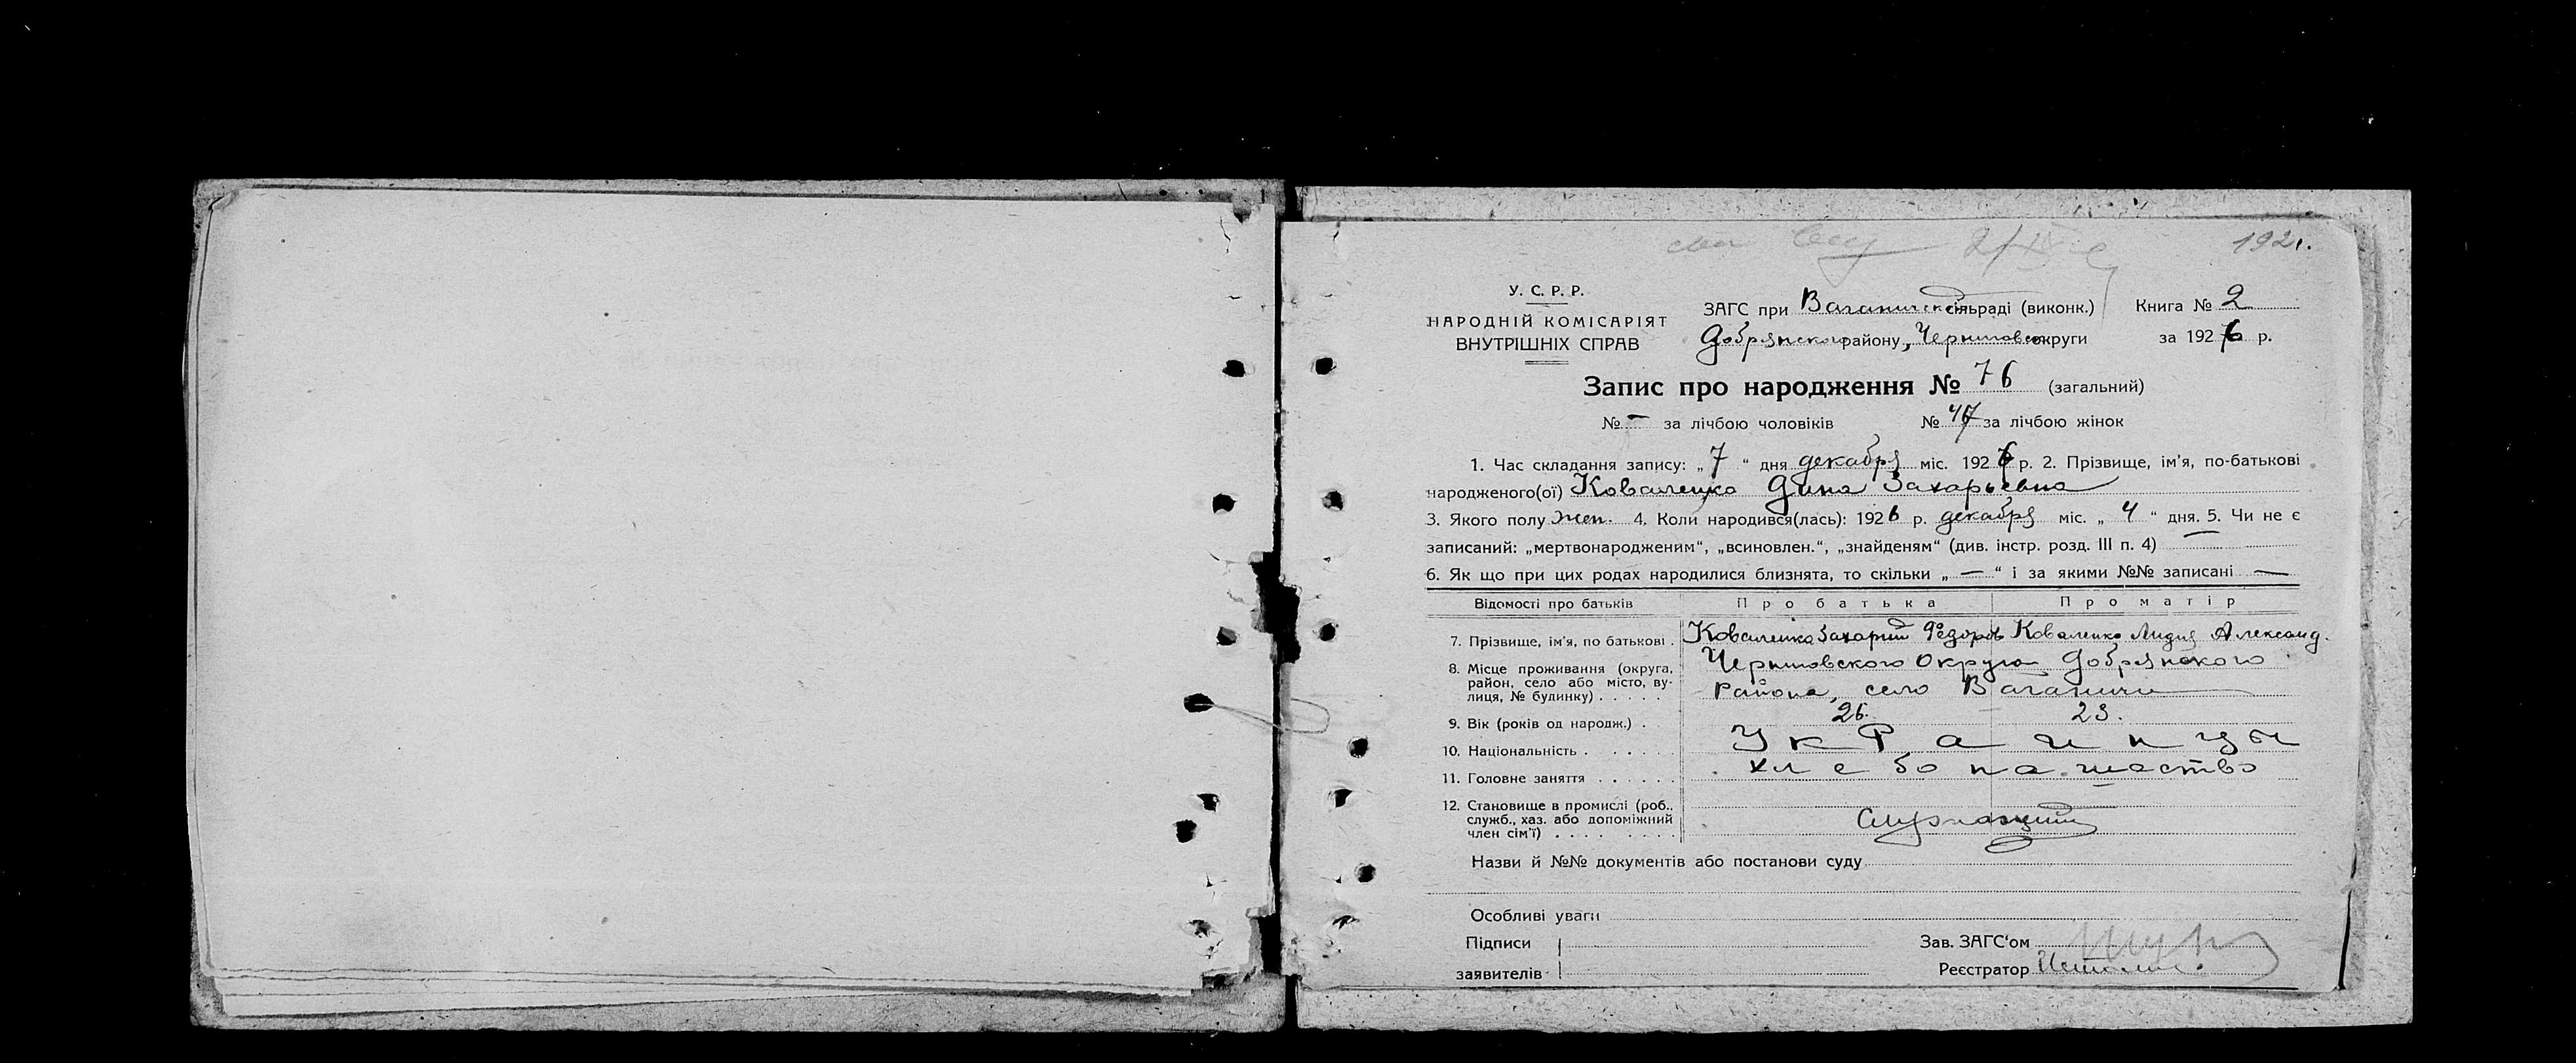 192
У. С. Р. Р.
НАРОДНІЙ КОМІСАРІЯТ
ВНУТРІШНІХ СПРАВ
ЗАГС при Ваганичской сільраді (виконк.) Книга № 2
Добрянского району, Черниговск округи за 1926 р.
Запис про народження № 76 (загальний)
№ – за лічбою чоловіків № 47 за лічбою жінок
1. Час складання запису: „7“ дня декабря міс. 1926 р. 2. Прізвище, ім’я, по-батькові
народженого(ої) Коваленко Дина Захарьевна
3. Якого полу жен. 4. Коли народився(лась): 1926 р. декабря міс. „4“ дня. 5. Чи не є
записаний: „мертвонародженим“, „всиновлен.“, „знайденям“ (див. інстр. розд. III п. 4) —
6. Як що при цих родах народилися близнята, то скільки „—“ і за якими №№ записані —
Відомості про батьків Про батька Про матір
7. Прізвище, ім’я, по батькові . Коваленко Захарий Федоров Коваленко Лидия Александ.
8. Місце проживання (округа, район, село або місто, вулиця, № будинку) . . . . . Черниговского Округа Добрянского
района, село Ваганичи
9. Вік (років од народж.) . . 26. 23.
10. Національність . . . . . . Украинцы
11. Головне заняття . . . . . . хлебопашество
12. Становище в промислі (роб.,
служб., хаз. або допоміжний
член сім’ї) . . . . . . . . .
Назви й №№ документів або постанови суду
Особливі уваги
Підписи
заявителів
Зав. ЗАГС‘ом
Реєстратор